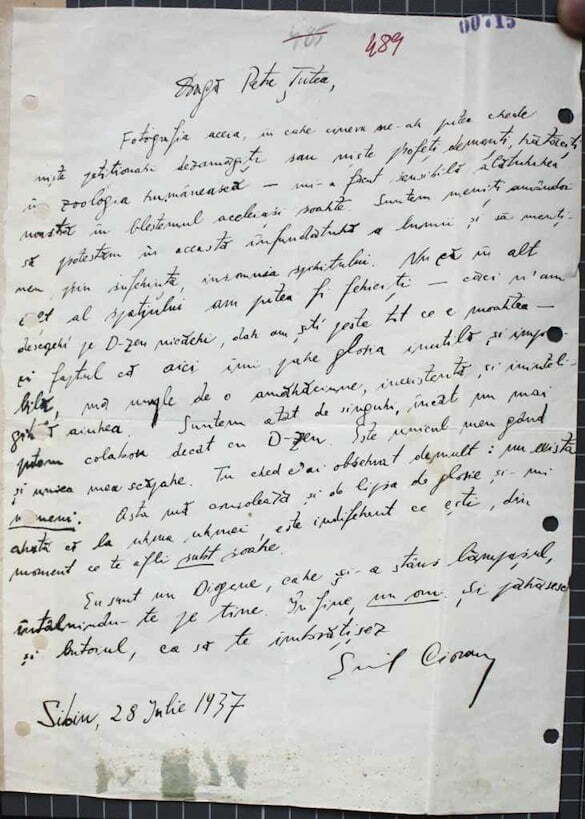 485
489
00715
Dragă Petre Țuțea,
Fotografia aceea, în care cineva ne-ar putea crede
niște petiționari dezamăgiți sau niște profeți demenți, rătăciți
în zoologia românească — mi-a făcut sensibilă alăturarea
noastră în blestemul aceleiași soarte. Suntem meniți amândoi
să protestăm în această înfundătură a lumii și să menți-
nem, prin suferință, insomnia spiritului. Nu că în alt
al spațiului am putea fi fericiți — căci n'am
descoperi pe D-zeu nicăeri, dar am ști peste tot ce e moartea —
ci faptul că aici îmi pare gloria inutilă și impo-
sibilă, mă umple de o amărăciune, inexistentă și ininteli-
gibilă aiurea. Suntem atât de singuri, încât nu mai
putem colabora decât cu D-zeu. Este unicul meu gând
și unica mea scăpare. Tu cred c'ai observat demult: nu există
oameni. Asta mă consolează și de lipsa de glorie și-mi
arată că la urma urmei, este indiferent ce ești, din
moment ce te afli subt soare.
Eu sunt un Diogene, care și-a stins lămpașul,
întâlnindu-te pe tine. În fine, un om. Își părăsesc
și butoiul, ca să te îmbrățișez
Emil Cioran
Sibiu, 28 Iulie 1937